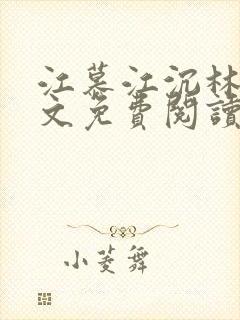 江慕江沉林
文免費閱讀
小菱舞